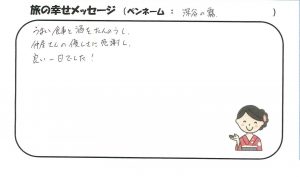 旅の幸せメッセージ (ペンネーム : 深谷の露 )
うまい食事と酒をたんのうし、
仲居さんの優しさに感謝し、
良い一日でした!